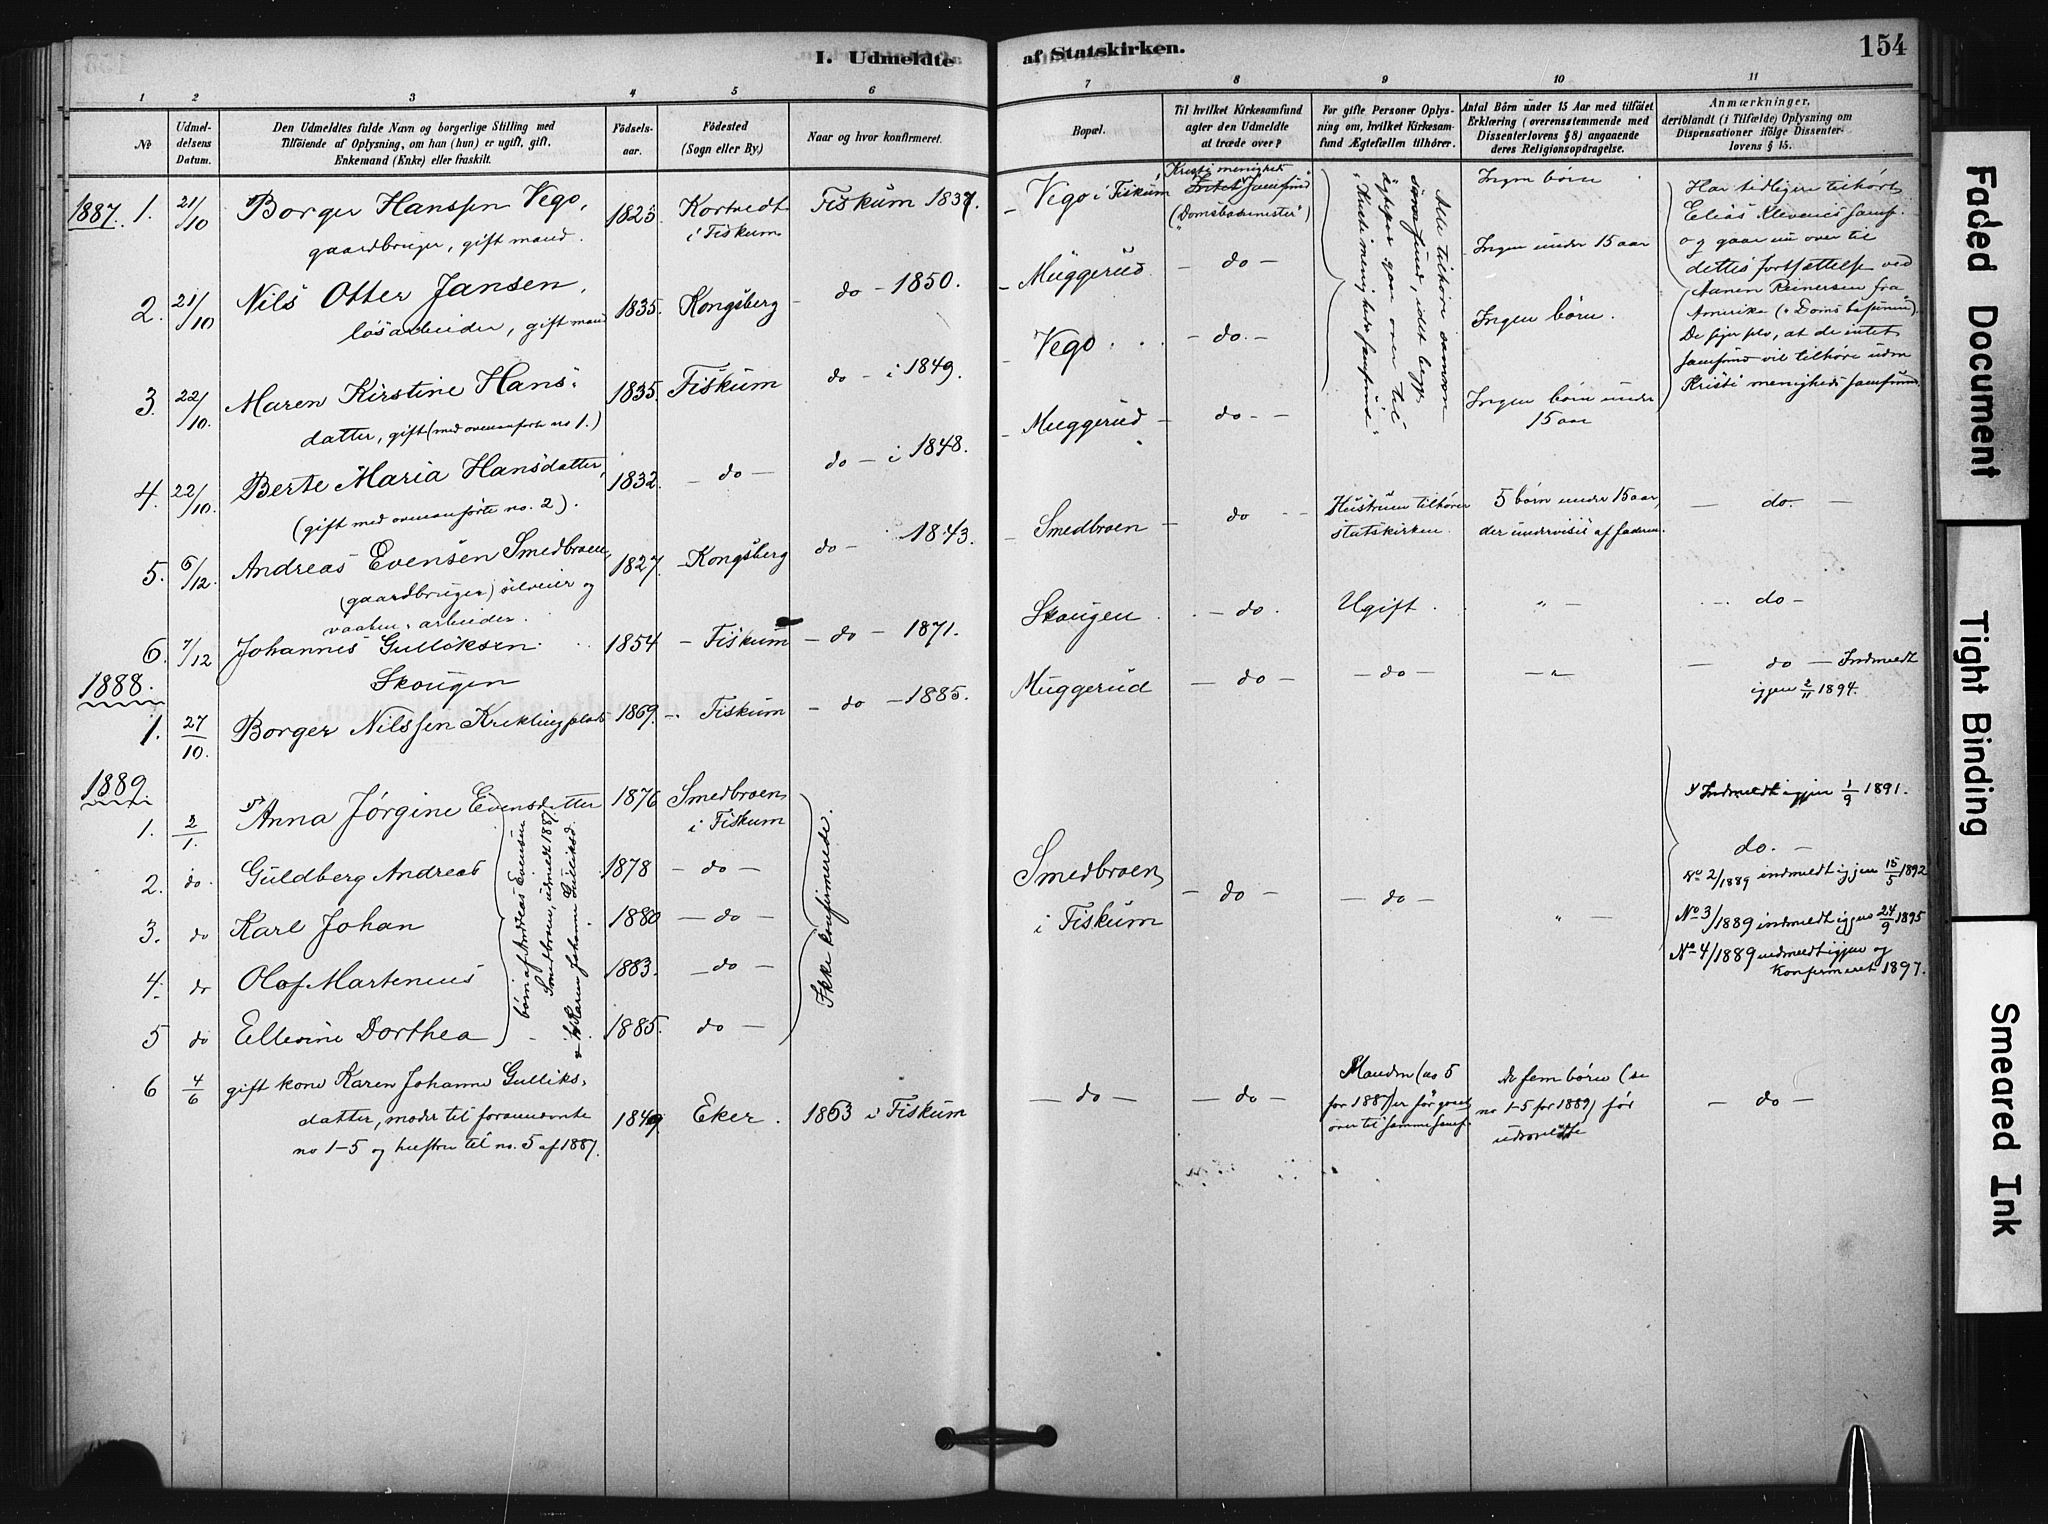 I. Udmeldte af Statskirken.
154
1 2 3 4 5 6 7 8 9 10 11
No
Udmeldelsens Datum.
Den Udmeldtes fulde Navn og borgerlige Stilling med
Tilföiende af Oplysning, om han (hun) er ugift, gift,
Enkemand (Enke) eller fraskilt.
Födselsaar.
Födested
(Sogn eller By.)
Naar og hvor konfirmeret.
Bopæl.
Til hvilket Kirkesamfund
agter den Udmeldte
at træde over?
For gifte Personer Oplysning om, hvilket Kirkesamfund Ægtefællen tilhörer.
Antal Börn under 15 Aar med tilföiet
Erklæring (overensstemmende med
Dissenterlovens § 8) angaaende
deres Religionsopdragelse.
Anmærkninger,
deriblandt (i Tilfælde) Oplysning om
Dispensationer ifölge Dissenterlovens § 15.
1887. 1. 21/10 Borger Hanssen Vego,
gaardbruger, gift mand.
1823 Kortvedt
i Fiskum
Fiskum 1837.
Vego i Fiskum
Kristi menigheds
Samfund
(Domsbasunister)
Ingen börn
2. 21/10 Nils Otter Jansen,
lösarbeider, gift mand
1835. Kongsberg - do - 1850.
Muggerud - do -
Ingen under 15 aar
3. 22/10. Maren Kirstine Hansdatter, gift (med ovenanförte no 1.)
1835. Fiskum do - i 1849.
Vego - do. -
Ingen börn.
4. 22/10. Berte Maria Hansdatter,
(gift med ovenanförte no. 2).
1832. - do - do - i 1848.
Muggerud - do -
Ingen börn under
15 aar
Alle tilhöre samme
samfund, idet begge
ægtepar gaa over til
"Kristi menigheds samfund"
Har tidligere tilhört
Elias Klevenes samf.
og gaar nu over til
dettes fortsættelse ved
Reinersen fra
Amerika ("Domsbasunen").
De siger selv, at de intet
samfund vil tilhöre uden
Kristi menigheds samfund.
5. 6/12. Andreas Evensen Smedbroen,
(gaardbruger) sölveier og
vaaben-arbeider.
1827. - Kongsberg do - 1843.
Smedbroen - do -
Hustruen tilhörer
statskirken.
5 börn under 15 aar,
der undervises af faderen.
- do. -
6. 7/12 Johannes Gulliksen
Skougen
1854 - Fiskum - do - 1871.
Skougen - do. Ugift. " - - do -
1888.
1. 27/10. Borger Nilssen Kreklingplads 1869. - Fiskum - do - 1885.
Muggerud - do - - do - - " - do - Indmeldt
igjen 2/11 1894.
1889
1. 2/1. Anna Jørgine Evensdatter 1876 Smedbroen
i Fiskum
2. do. Guldberg Andreas 1878 - do -
3. do Karl Johan 1880 - do -
4. do Olaf Martenius 1883. - do -
5 do Ellevine Dorthea 1885. do -
börn af Andreas Evensen
Smedbroen, udmeldt 1887
& h. Karen Johanne Gulliksd.
Ikke konfirmerede.
Smedbroen
i Fiskum
- do - do - " -
Indmeldt igjen 1/9 1891.
do. -
No 2/1889 indmeldt igjen 15/5 1892
No 3/1889 indmeldt igjen 24/9 1895
No 4/1889 indmeldt igjen og
Konfirmeret 1897.
6 4/6 gift kone Karen Johanne Gulliksdatter, moder til foranævnte
no 1-5 og hustru til no. 5 af 1887.
1849 Eker. 1863 i Fiskum
- do - - do -
Manden (no 5
for 1887) er för gaaet
over til samme samf.
De fem börn (se
no 1-5 for 1889) för
udmeldte
- do -
Faded Document
Tight Binding
Smeared Ink